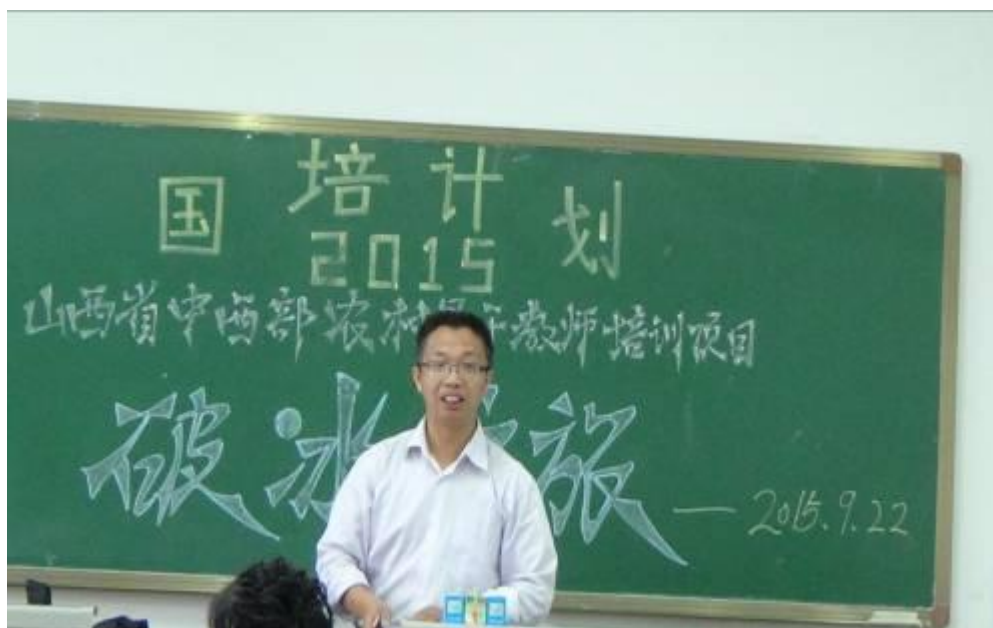 国培计划
2015
山西省中西部农村骨干教师培训项目
破冰之旅 — 2015.9.22